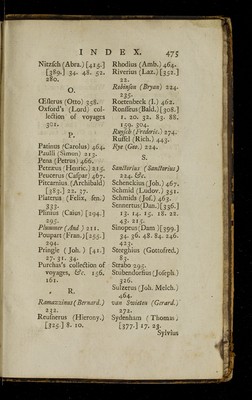 INDEX. 475
Nitzsch (Abra.) [415.]
[389.] 34. 48. 52.
280.
O.
Œsterus (Otto) 358.
Oxford's (Lord) col-
lection of voyages
301.
P.
Patinus (Carolus) 464.
Paulli (Simon) 213.
Pena (Petrus) 466.
Petræus (Henric.) 215.
Peucerus (Caspar) 467.
Pitcarnius (Archibald)
[385.] 22. 77.
Platerus (Felix, sen.)
333.
Plinius (Caius) [294.]
295.
Plummer (And) 211.
Poupart (Fran.) [255.]
294.
Pringle (Joh.) [41.]
27. 31. 34.
Purchas's collection of
voyages, &c. 156.
161.
R.
Ramazzinus (Bernard.)
232.
Reusnerus (Hierony.)
[325.] 8. 10.
Rhodius (Amb.) 464.
Riverius (Laz.) [352.]
22.
Robinson (Bryan) 224.
235.
Roetenbeck (I.) 462.
Ronsseus (Bald.) [308.]
1. 20. 32. 83. 88.
159. 304.
Ruysch (Frederic.) 274.
Russel (Rich.) 443.
Rye (Geo.) 224.
S.
Sanctorius (Sanctorius)
224. &c.
Schenckius (Joh.) 467.
Schmid (Ludov.) 351.
Schmids (Jos.) 463.
Sennertus (Dan.) [336.]
13. 14. 15. 18. 22.
43. 215.
Sinopeus (Dam) [399.]
34. 36. 48. 84. 246.
423.
Steeghius (Gottofred.)
83.
Strabo 295.
Stubendorfius (Joseph.)
326.
Sulzerus (Joh. Melch.)
464.
van Swieten (Gerard.)
272.
Sydenham (Thomas)
[377.] 17. 23.
Sylvius